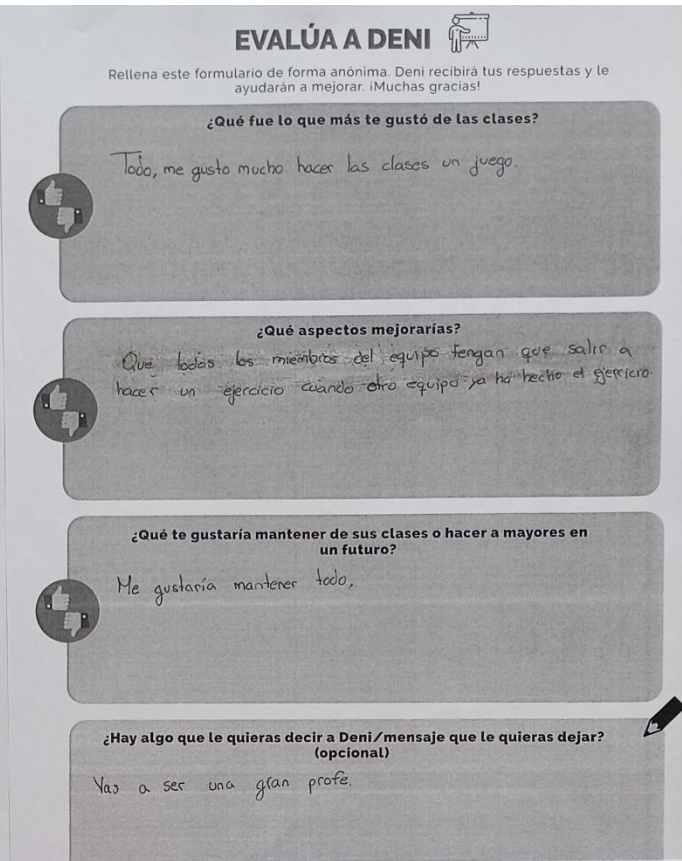 EVALÚA A DENI
Rellena este formulario de forma anónima. Deni recibirá tus respuestas y le
ayudarán a mejorar. ¡Muchas gracias!
¿Qué fue lo que más te gustó de las clases?
Todo, me gusto mucho hacer las clases un juego.
¿Qué aspectos mejorarías?
Que todos los miembros del equipo tengan que salir a
hacer un ejercicio cuando otro equipo ya ha hecho el ejercicio.
¿Qué te gustaría mantener de sus clases o hacer a mayores en
un futuro?
Me gustaría mantener todo.
¿Hay algo que le quieras decir a Deni/mensaje que le quieras dejar?
(opcional)
Vas a ser una gran profe.